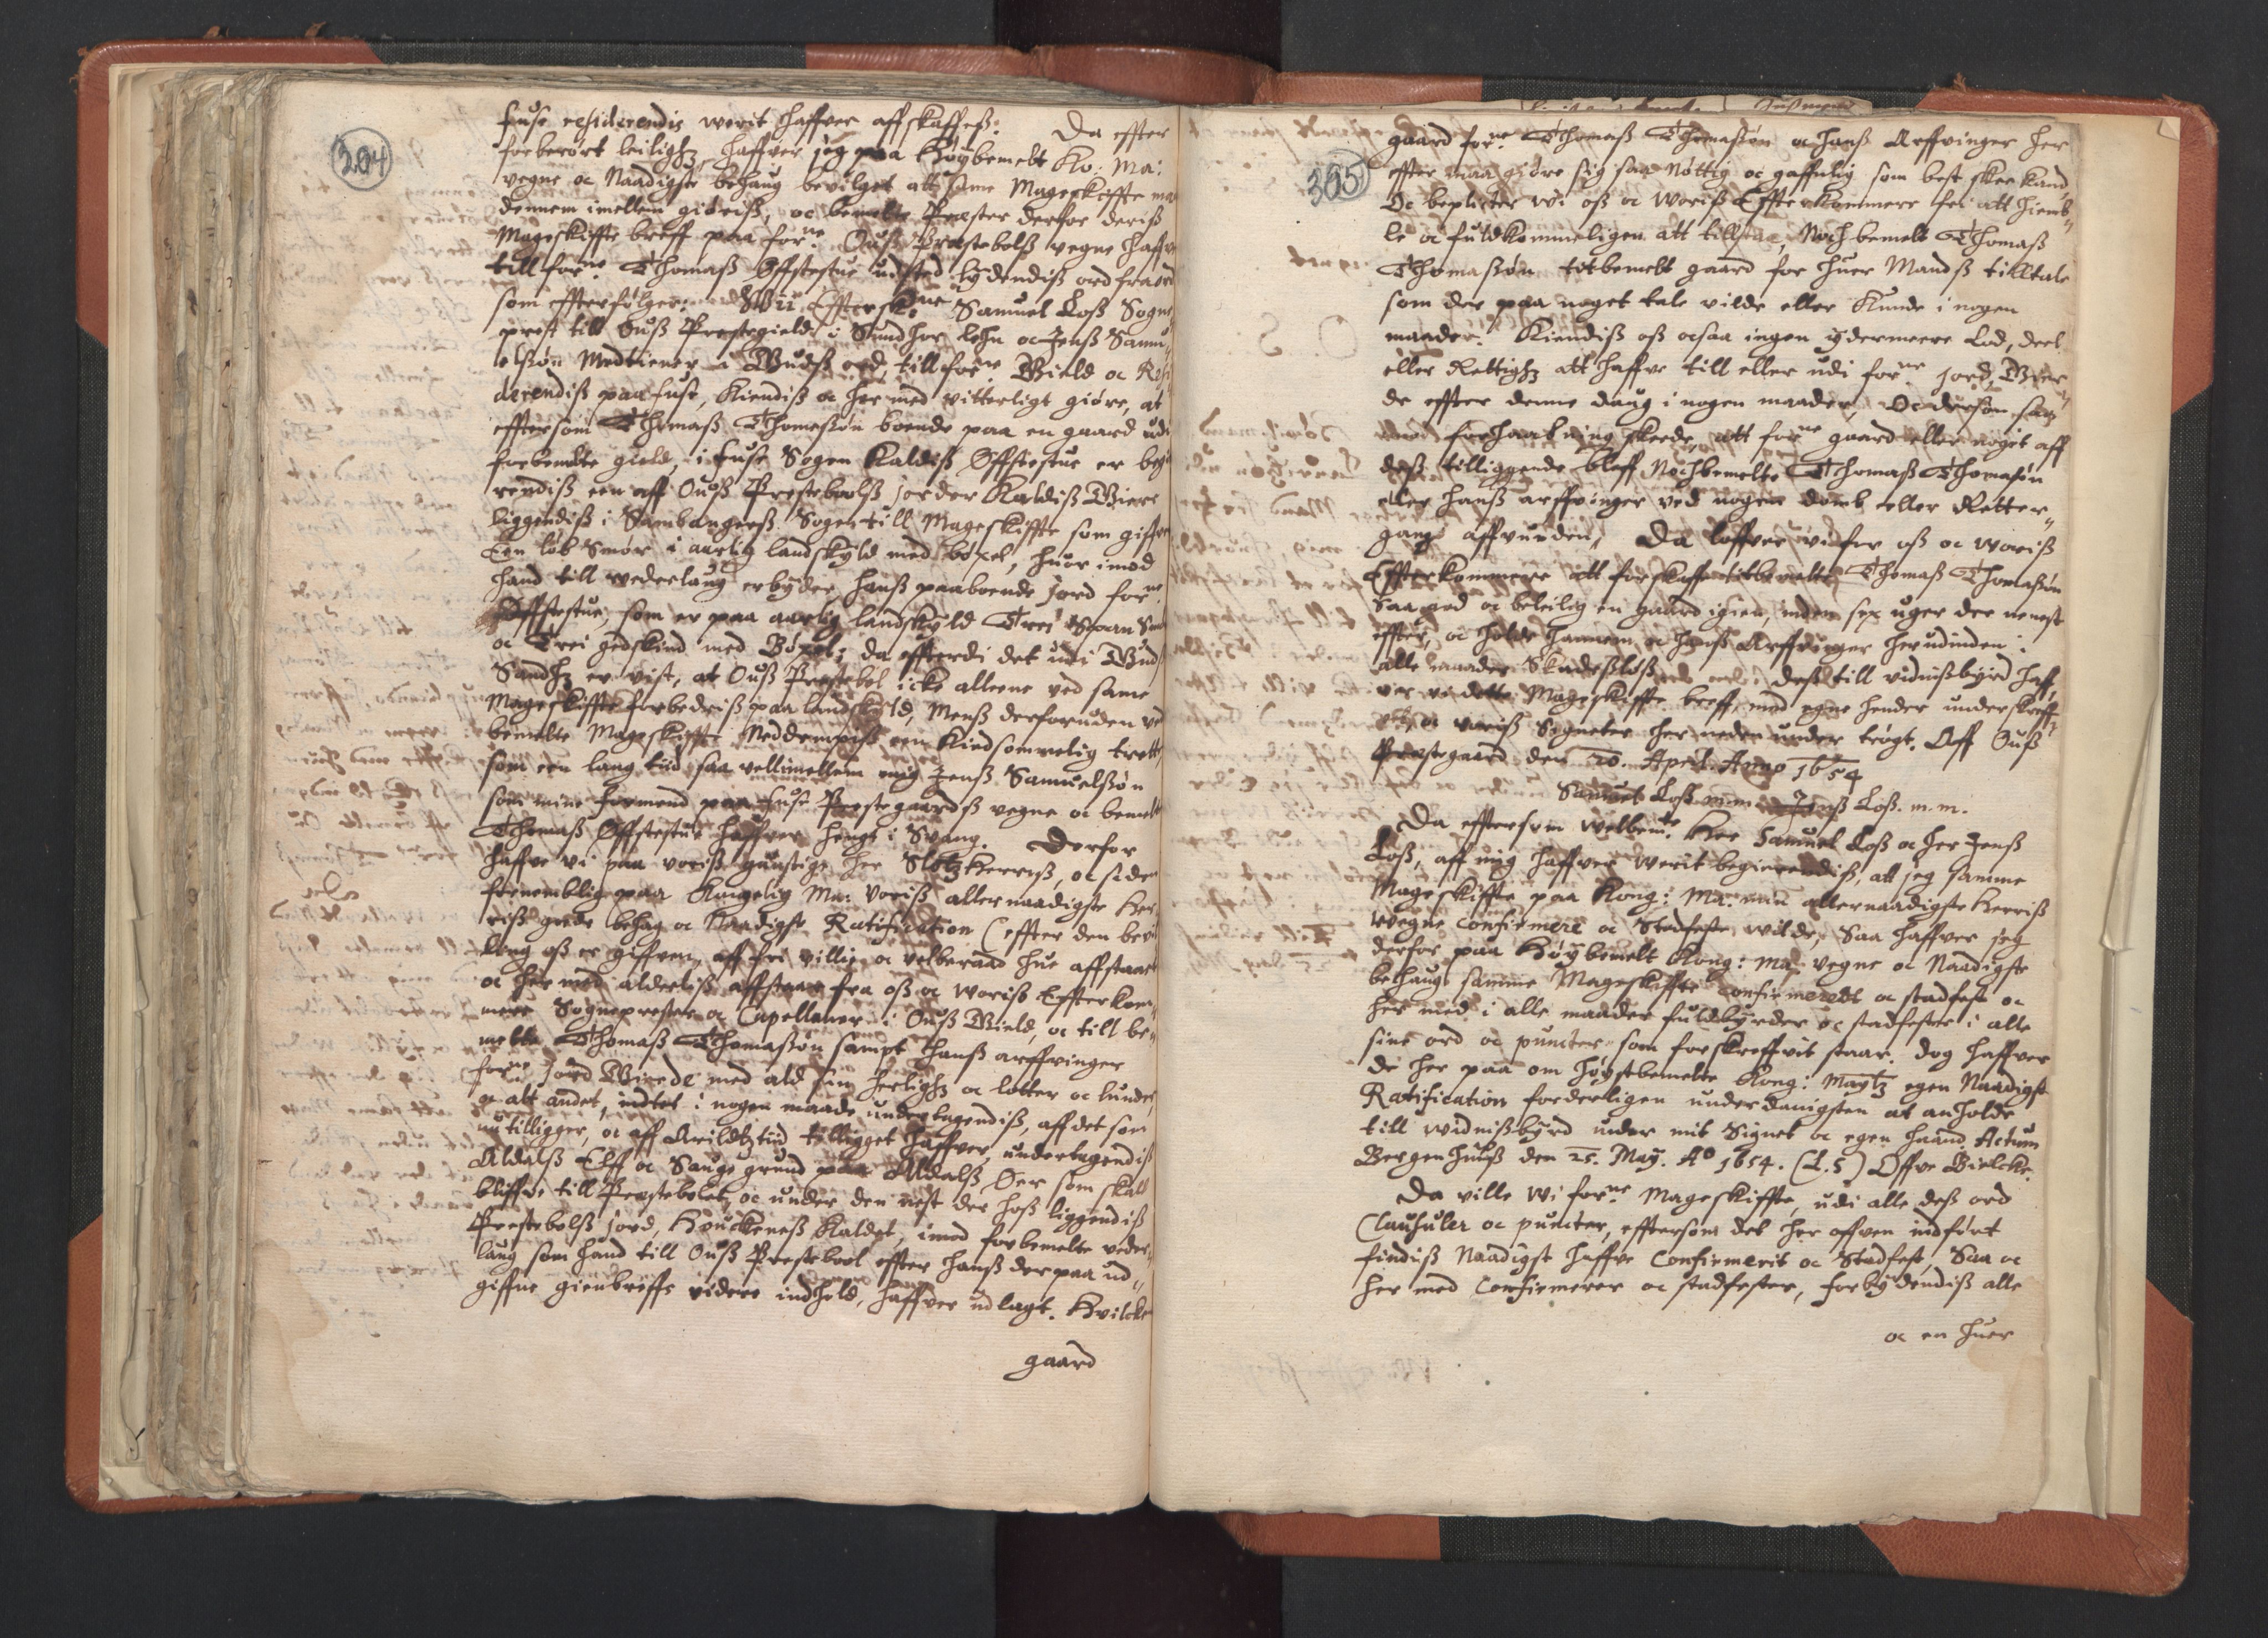 304
Fuse residerendis werit haffver affskaffess: Da effter
forberørt leilighz, haffver jeg paa Høybemelt Ko: Ma:
vegne oc Naadigste behaug bevilget att same Mageskiffte maa
dennem imellem giøriss, oc bemelte Prester derfor deriss
Mageskiffte breff paa forne Ouss Prestebolss vegne haffver
till forne Thomass Øffstestue udsted lydendiss ord fra ord
som effterfølger: Wii Effterskne Samuel Loss Sogne
prest till Ouss Prestegield i Sundhor Lehn oc Jenss Samu„
elssøn Medtiener i Gudss ord, till forne Gield oc Resi
derendiss paa Fuse, Kiendiss oc her med vitterligt giøre, at
efftersom Thomass Thomassøn boende paa en gaard udi
forbemelte gield, i Fuse Sogen Kaldiss Øffstestue er begie
rendiss een aff Ouss Prestebolss jorder Kaldiss Giere
liggendiss i Sambangerss Sogen till Mageskiffte som gifver
Een løb Smør i aarlig landskyld med bøxel, huor imod
hand till wederlaug erbyder hanss paaboende jord forne
Øffstestue, som er paa aarlig landskyld Trei Span Smør
oc Trei gedskind med Bøxel, da effterdi det udi Gudss
Sandhz er vist, at Ouss Prestebol icke alleene ved same
Mageskiffte forbedriss paa landskyld, Menss derforuden ved
bemelte Mageskiffte Neddempiss een Kiedsommelig trette
som een lang tiid saa vell imellem mig Jenss Samuelssøn
som mine Formend paa Fuse Prestegaardss vegne oc bemelte
Thomass Øffstestue haffver hengt i Svang. Derfor
haffve vi paa voriss gunstige her Slotzherriss, oc siden
fornemblig paa Kongelig Ma: Voriss allernaadigste Her„
riss gode behag oc Naadigst Ratification (effter den bevi
ling oss er gifven, aff fri villie oc velberaad hue affstaaet
oc her med alderliss affstaar fra oss oc Woriss Effterkom„
mere Sogneprester oc Capellaner i Ouss Gield, oc till be„
melte Thomass Thomassøn sampt hanss arffvinger
forne jord Gierde med ald sin herlighz oc lotter oc lunder,
oc alt andet, indtet i nogen maade undertagendiss, aff det som
nu tilligger, oc aff Arildtz tiid tilligget haffver, undertagendiss
Aldalss Elff oc Sauge grund paa Aldalss Øer som skall
bliffve till Prestebolet, oc under den nest der hoss liggendiss
Prestebolss jord, Kaldet, imod forbemelte veder„
laug som hand till Ouss Prestebool effter hanss derpaa ud„
giffne gienbreffs videre indhold, haffver udlagt. Hvilcken
gaard
305
gaard forne Thomass Thomassøn oc hanss Arffvinger her
effter maa giøre sig saa Nøttig oc gaffnlig som best skee kand
Oc bepligter wi oss oc Woriss Effterkommere frii att hiemb„
le oc fuldkommeligen att tillstaa, Nochbemelt Thomass
Thomassøn titbemelt gaard for huer Mandss tilltale
som der paa noget tale vilde eller Kunde i nogen
maader. Kiendiss oss ocsaa ingen ydermeere Lod, deel
eller Rettighz att haffve till eller udi forne jord, Gier„
de effter denne daug i nogen maader, Oc dersom saa
forhaabning skeede, att forne gaard eller noget aff
dess tilliggende bleff Nochbemelte Thomass Thomasøn
eller hanss arffvinger ved nogen domb eller Retter„
gang affvunden, Da loffver vi for oss oc Woriss
Effterkommere att forskaffe titbemelte Thomass Thomassøn
Saa god oc beleilig en gaard igien, inden sex uger der nenest
effter, oc holde hannem oc hanss Arffvinger herudinden i
alle maader Skadessløss. Dess till vidnissbyrd haff„
ver vi dette Mageskiffte breff, med egne hender underskreff„
vet, oc voriss Signeter her neden under trøgt. Aff Ouss
Prestegaard den 20. April. Anno 1654
Samuel Loss mm. Jenss Loss. m. m.
Da efftersom Welbemte Her Samuel Loss oc Her Jenss
Loss, aff mig haffver werit begierendiss, att jeg samme
Mageskiffte paa Kong: Ma: min allernaadigste Herriss
Wegne Confirmere oc Stedfeste wilde, Saa haffver jeg
derfor paa Høybemelt Kong: Ma: vegne oc Naadigste
behaug samme Mageskiffte Confirmeredt oc stadfest oc
her med i alle maader fuldbyrder oc stadfester i alle
sine ord oc puncter som forskreffvit staar. Dog haffver
de her paa om Høystbemelte Kong: Maytz egen Naadigste
Ratification forderligen underdanigsten at anholde
till Widnissbyrd under mit Signet oc egen haand. Actum
Bergenhuuss den 25. May. Ao 1654. (L.S) Offve Bielcke.
Da ville Wi forne Mageskiffte, udi alle dess ord
Clausuler oc puncter, efftersom det her offven indført
findiss Naadigst haffve Confirmerit oc Stadfest, Saa oc
her med Confirmerer oc stadfester, Forbydendiss alle
oc en huer